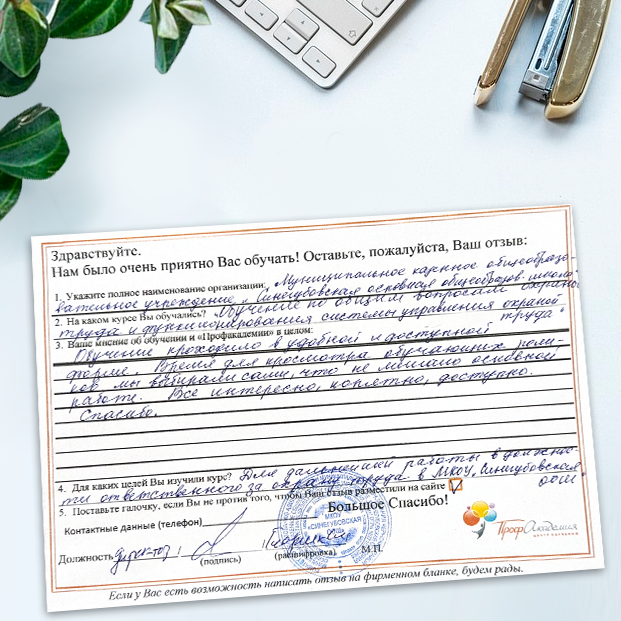 Здравствуйте.
Нам было очень приятно Вас обучать! Оставьте, пожалуйста, Ваш отзыв:
1. Укажите полное наименование организации: Муниципальное казенное общеобразо-
вательное учреждение „Синегубовская основная общеобразов. школа"
2. На каком курсе Вы обучались? Обучение по общим вопросам охраны
труда и функционирования системы управления охраной
труда.
3. Ваше мнение об обучении и «Профакадемии» в целом:
Обучение проходило в удобной и доступной
форме. Время для просмотра обучающих роли-
ков мы выбирали сами, что не мешало основной
работе. Все интересно, понятно, доступно.
Спасибо.
4. Для каких целей Вы изучили курс? Для дальнейшей работы в должнос-
ти ответственного за охрану труда в МКОУ „Синегубовская
ООШ"
5. Поставьте галочку, если Вы не против того, чтобы Ваш отзыв разместили на сайте
Большое Спасибо!
Контактные данные (телефон)
МКОУ
«СИНЕГУБОВСКАЯ
ПрофАкадемия
Должность директор
(подпись)
(расшифровка)
М.П.
Если у Вас есть возможность написать отзыв на фирменном бланке, будем рады.